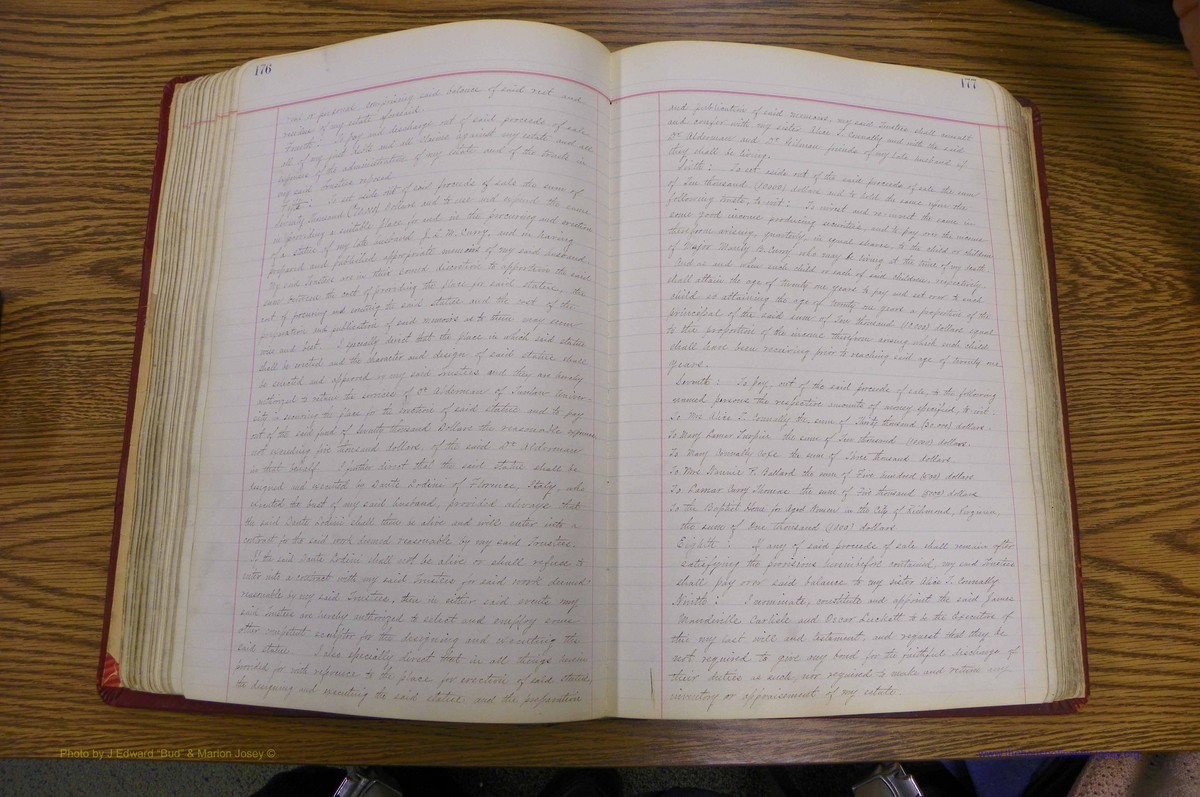 176
real or personal, comprising said balance of said rest and
residue of my estate aforesaid.
Fourth: To pay and discharge out of said proceeds of sale
all of my just debts and all claims against my estate and all
expenses of the administration of my estate and of the trusts in
my said Trustees reposed.
Fifth: To set aside out of said proceeds of sale the sum of
Twenty Thousand (20,000) Dollars and to use and expend the same
in providing a suitable place for and in the procuring and erection
of a statue of my late husband J. L. M. Curry, and in having
prepared and published appropriate memoirs of my said husband,
My said Trustees are in their sound discretion to apportion the said
sum between the cost of providing the place for said statue, the
cost of procuring and erecting the said statue and the cost of the
preparation and publication of said memoirs as to them may seem
wise and best. I specially direct that the place in which said statue
shall be erected and the character and design of said statue shall
be selected and approved by my said Trustees and they are hereby
authorized to retain the services of Dr Alderman of Tulane Univer-
sity in securing the place for the erection of said statue and to pay
out of the said fund of twenty thousand Dollars the reasonable expenses
not exceeding five thousand dollars of the said Dr Alderman
in that behalf. I further direct that the said statue shall be
designed and executed by Dante Sodini of Florence, Italy, who
executed the bust of my said husband, provided always that
the said Dante Sodini shall then be alive and will enter into a
contract for the said work deemed reasonable by my said Trustees.
If the said Dante Sodini shall not be alive or shall refuse to
enter into a contract with my said Trustees for said work deemed
reasonable by my said Trustees, then in either said events my
said Trustees are hereby authorized to select and employ some
other competent sculptor for the designing and executing the
said statue. I also specially direct that in all things herein
provided for with reference to the place for erection of said statue,
the designing and executing the said statue and the preparation
177
and publication of said memoirs, my said Trustees shall consult
and confer with my sister Alice T. Connally and with the said
Dr Alderman and Dr Gilman friends of my late husband if
they shall be living.
Sixth: To set aside out of the said proceeds of sale the sum
of Ten thousand (10000) dollars and to hold the same upon the
following trusts, to wit: To invest and re-invest the same in
some good income producing securities, and to pay over the income
therefrom arising, quarterly, in equal shares, to the child or children
of Major Manly B. Curry who may be living at the time of my death.
And as and when such child or each of said children, respectively,
shall attain the age of twenty one years to pay and set over to such
child so attaining the age of twenty one years a proportion of the
principal of the said sum of Ten thousand (10,000) dollars equal
to the proportion of the income therefrom arising which such child
shall have been receiving prior to reaching said age of twenty one
years.
Seventh: To pay, out of the said proceeds of sale, to the following
named persons the respective amounts of money specified, to wit:
To Mrs Alice T. Connally the sum of Thirty thousand (30,000) dollars.
To Mary Lamar Turpin the sum of Ten thousand (10000) dollars.
To Mary Connally Coxe the sum of Three thousand dollars.
To Mrs. Nannie F. Ballard the sum of Five hundred (500) dollars
To Lamar Curry Thomas the sum of Five thousand (5000) dollars
To The Baptist Home for Aged Women in the City of Richmond, Virginia,
the sum of One thousand (1000) dollars.
Eighth: If any of said proceeds of sale shall remain after
satisfying the provisions hereinbefore contained, my said Trustees
shall pay over said balance to my sister Alice T. Connally
Ninth: I nominate, constitute and appoint the said James
Mandeville Carlisle and Oscar Luckett to be the Executors of
this my last will and testament, and request that they be
not required to give any bond for the faithful discharge of
their duties as such, nor required to make and return any
inventory or appraisement of my estate.
Photo by J Edward "Bud" & Marion Josey ©